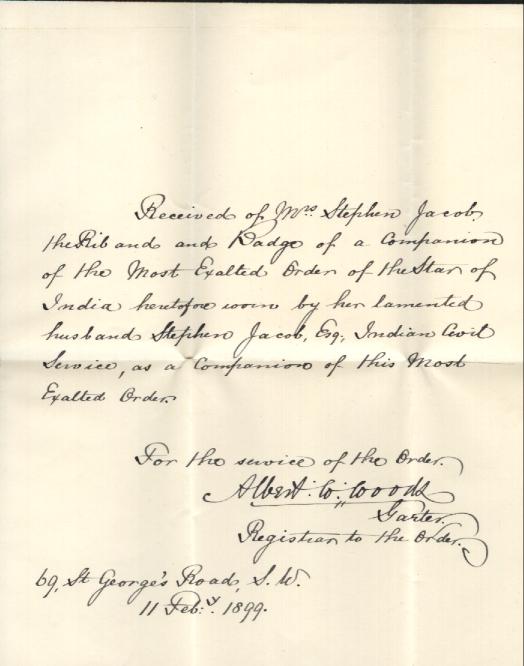 Received of Mrs Stephen Jacob,
the Riband and Badge of a Companion
of the Most Exalted Order of the Star of
India heretofore worn by her lamented
husband Stephen Jacob, Esq, Indian Civil
Service, as a Companion of this Most
Exalted Order.
For the service of the Order.
Albert W. Woods
Garter.
Registrar to the Order.
69, St George's Road, S.W.
11 Feby. 1899.